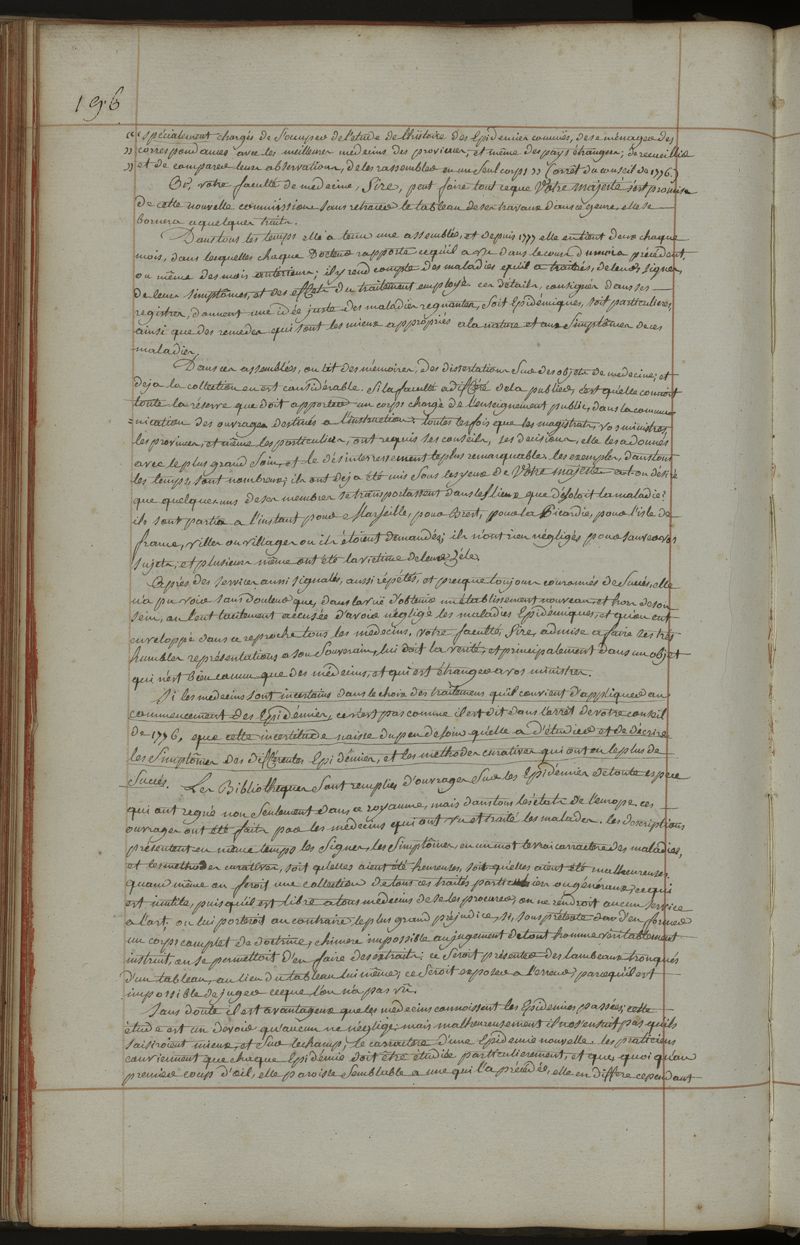 196
« spécialement chargés de s'occuper de l'etude de l'histoire des Epidemies connües, de se ménager des
» correspondances avec les meilleurs médecins des provinces, et même des pays étrangers; de recueillir
» et de comparer leurs observations, de les rassembler en un seul corps » (arrêt du conseil de 1776.)
Or, votre faculté de medecine, Sire, peut faire tout ce que Votre Majesté s'est promise
de cette nouvelle commission. Sans retracer le tableau de ses travaux dans ce genre, elle se
bornera a quelques traits.
Dans tous les temps elle a tenu une assemblée, et depuis 1777 elle en tient deux chaque
mois, dans lesquelles chaque Docteur rapporte ce qu'il a vu dans le cours du mois précédent,
ou même des mois antérieurs; il y rend compte des maladies qu'il a traitées, de leurs signes,
de leurs simptômes, et des effets du traitement employé. ces détails, consignés dans ses
registres, donnent une idée juste des maladies regnantes, soit Epidémiques, soit particulieres,
ainsi que des remedes qui sont les mieux appropriés a la nature et aux simptômes de ces
maladies.
Dans ces assemblées, on lit des mémoires, des dissertations sur des objets de medecine; et
deja la collection en est considérable. Si la faculté a différé de la publier, c'est qu'elle connoit
toute la réserve que doit apporter un corps chargé de l'enseignement public, dans la commu-
nication des ouvrages destinés a l'instruction. toutes les fois que les magistrats, vos ministres,
les provinces, et même les particuliers, ont requis ses conseils, ses decisions, elle les a donnés
avec le plus grand soin, et le désinterressement le plus remarquable. les exemples, dans tous
les temps, sont nombreux; ils ont deja été mis sous les yeux de Votre Majesté. at-on désiré
que quelques uns de ses membres se transportassent dans les lieux que désoloit la maladie?
ils sont partis a l'instant pour Marseille, pour Brest, pour la Picardie, pour l'isle de
france, villes ou villages ou ils étoient demandés; ils n'ont rien négligés pour sauver vos
sujets, et plusieurs même ont été la victime de leur zéle.
Après des services aussi signalés, aussi répétés, et presque toujours couronnés de succès, elle
n'a pu voir sans douleur que, dans la vuë d'obtenir un établissement nouveau, et hors de son
sein, on l'eut tacitement accusée d'avoir négligé les maladies Epidémiques, et qu'on eut
enveloppé dans ce reproche tous les médecins, votre faculté, Sire, admise a faire ses très
humbles représentations a son Souverain, lui doit la verité, et principalement dans un objet
qui n'est bien connu que des médecins, et qui est étranger a vos ministres.
Si les medecins sont incertains dans le choix des traitemens qu'il convient d'appliquer au
commencement des Epidémies, ce n'est pas comme il est dit dans l'arrêt de votre conseil
de 1776, que cette incertitude naisse du peu de soin qu'elle a d'étudier et de décrire
les simptômes des différentes Epidémies, et les methodes curatives qui ont eu le plus de
succès. Les Bibliotheques sont remplies d'ouvrages sur les Epidémies de toute espece
qui ont regné non seulement dans ce royaume, mais dans tous les états de l'europe. ces
ouvrages ont été faits par les médecins qui ont vu et traité les malades. les descriptions
présentent en même temps les signes, les simptômes, en un mot le vrai carractere des maladies,
et les methodes curatives, soit qu'elles aient été heureuses, soit qu'elles aient été malheureuses.
quand même on feroit une collection de tous ces traités particuliers ou généraux, ce qui
est inutile, puis qu'il est libre a tous medecins de se les procurer, on ne rendroit aucun service
a l'art; on lui porteroit au contraire le plus grand préjudice, si, sous prétexte d'en former
un corps complet de doctrine, chimere impossible au jugement de tout homme véritablement
instruit, on se permettoit d'en faire des extraits; ce seroit présenter des lambeaux tronqués
d'un tableau, au lieu du tableau lui même; ce seroit exposer a l'erreur; parcequ'il est
impossible de juger ce que l'on n'a pas vû.
Sans doute il est avantageux que les medecins connoissent les Epidemies passées; cette
étude est un devoir qu'aucun ne néglige. mais malheureusement il ne s'ensuit pas qu'ils
saisiroient mieux, et sur le champ, le carractere d'une Epidemie nouvelle. les praticiens
conviennent que chaque Epidémie doit être étudiée particulierement, et que, quoi qu'au
premier coup d'œil, elle paroisse semblable a une qui l'a précédée, elle en differe cependant